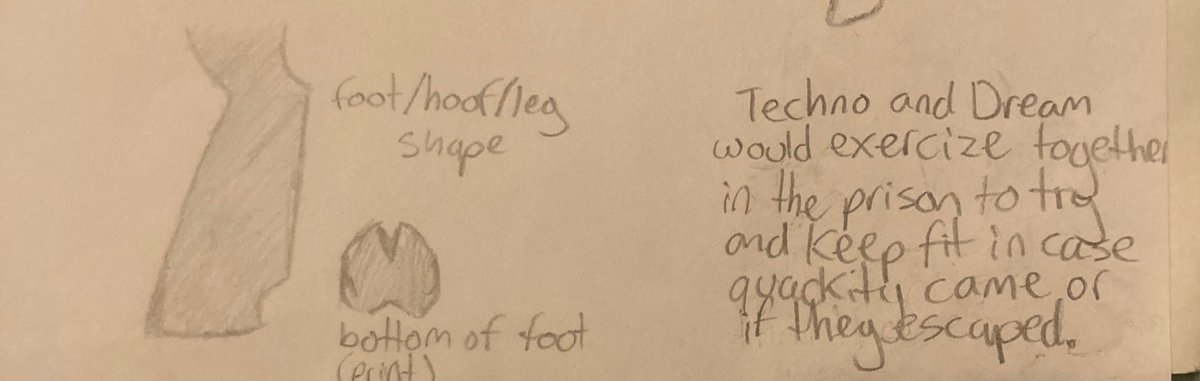 foot/hoof/leg
shape
bottom of foot
(print)
Techno and Dream
would exercize together
in the prison to try
and keep fit in case
quackity came or
if they escaped.